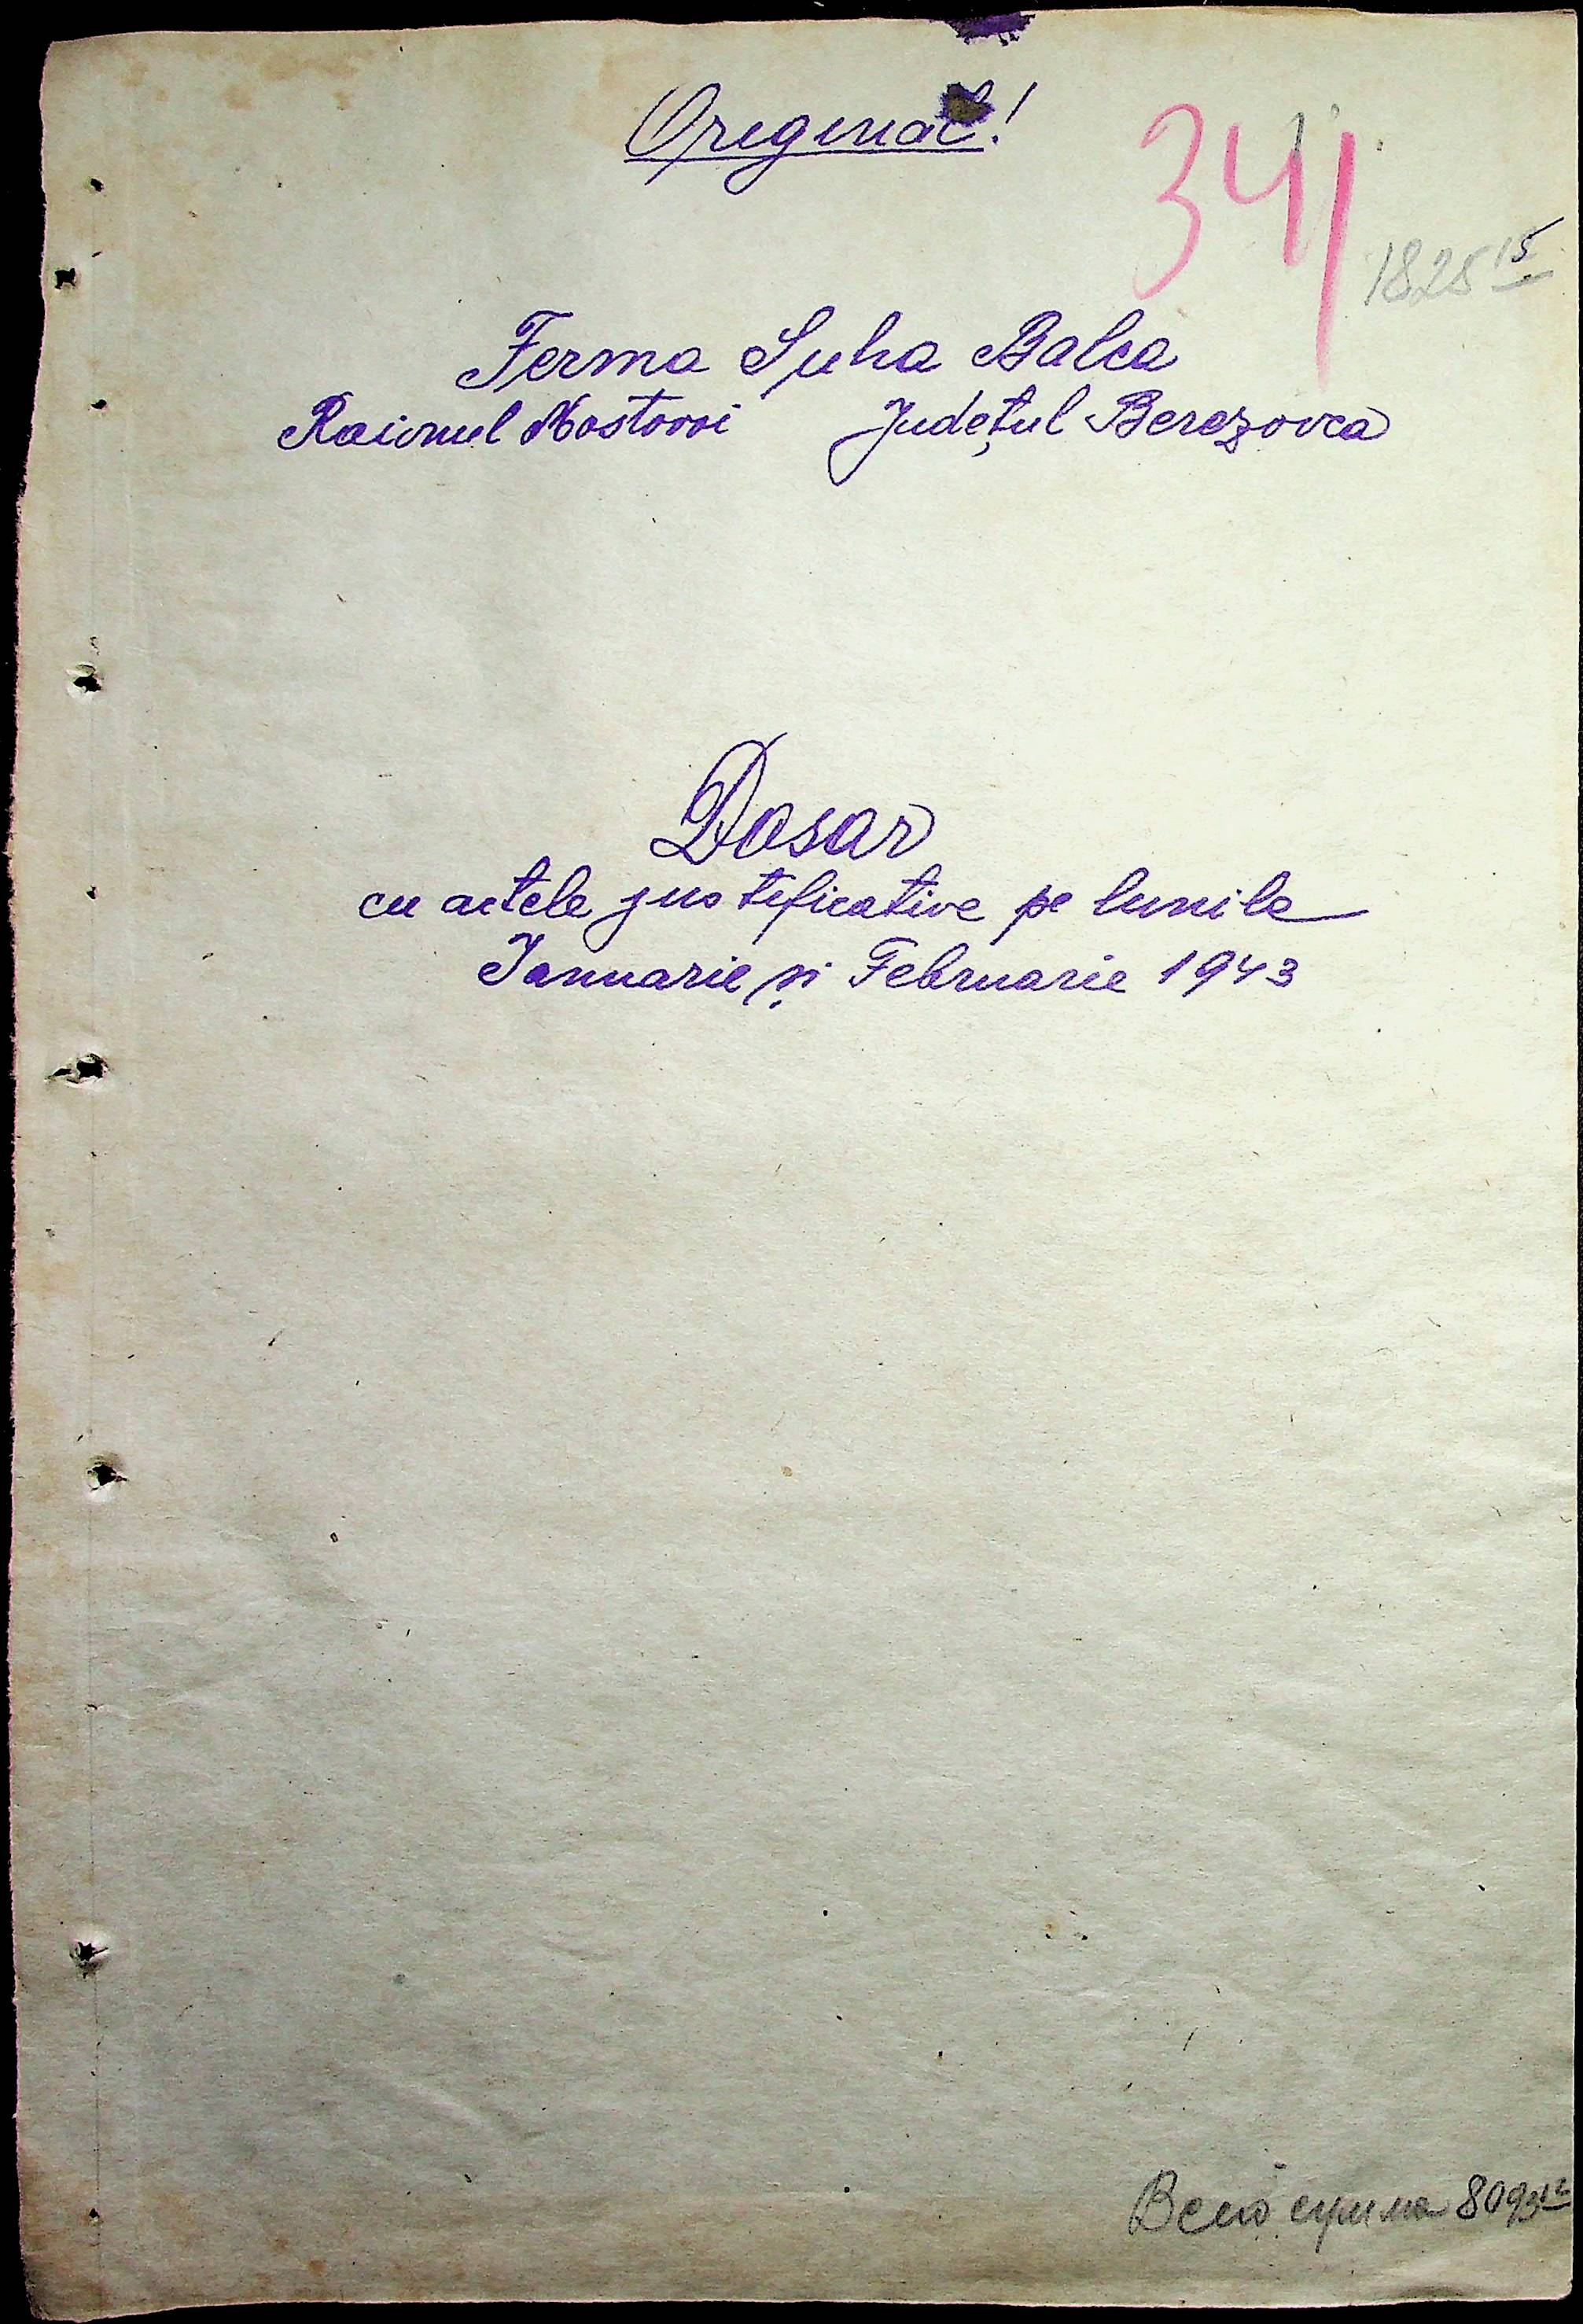 Original!
341
1825 15
Ferma Suha Balca
Raionul Mostovoi Județul Berezovca
Dosar
cu actele justificative pe lunile
Ianuarie și Februarie 1943
сумма